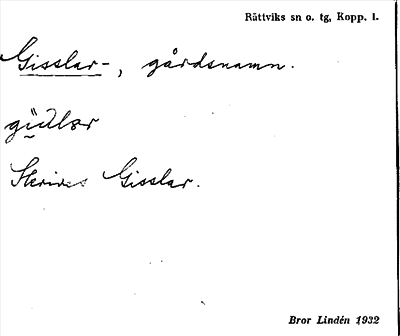 Rättviks sn o. tg, Kopp. l.
Gisslar-, gårdsnamn.
Skrives Gisslar.
Bror Lindén 1932